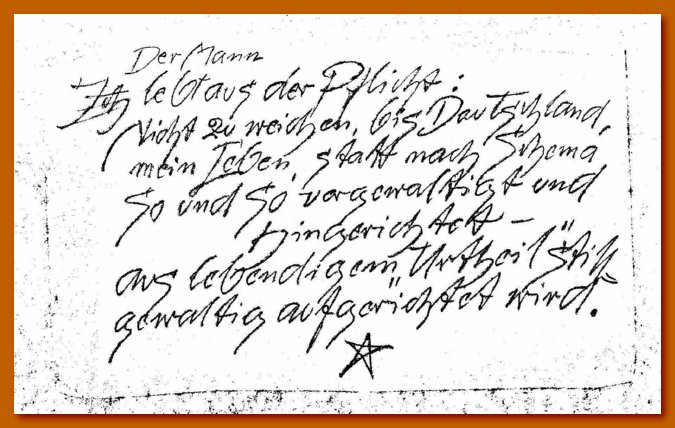 Der Mann
lebt aus der Pflicht:
Nicht zu weichen, bis Deutschland,
mein Leben, statt nach Schema
So und So vergewaltigt und
Hingerichtet –
aus lebendigem Urtheil "still
gewaltig aufgerichtet wird."